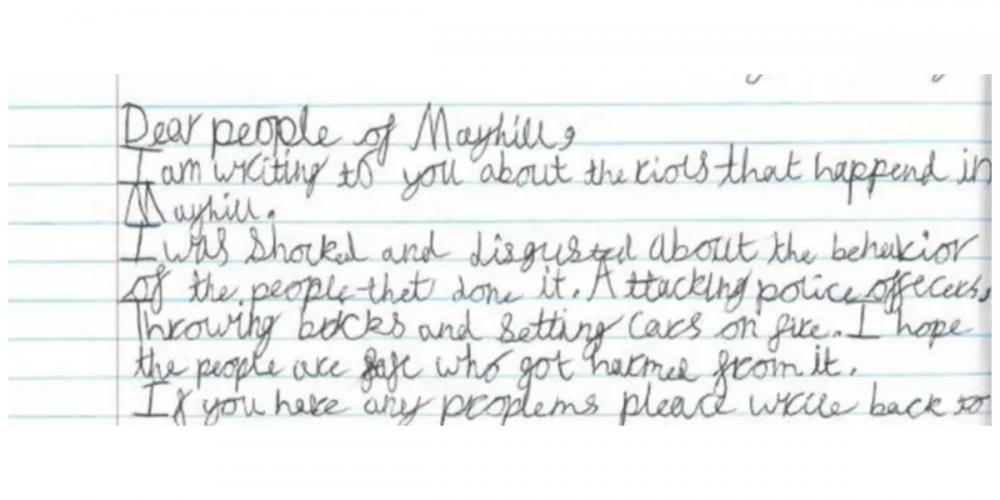 Dear people of Mayhill,
I am writing to you about the riots that happend in
Mayhill.
I was shocked and disgusted about the behavior
of the people that done it. Attacking police offecers,
Throwing bricks and setting cars on fire. I hope
the people are safe who got harmed from it.
If you have any proplems please write back to